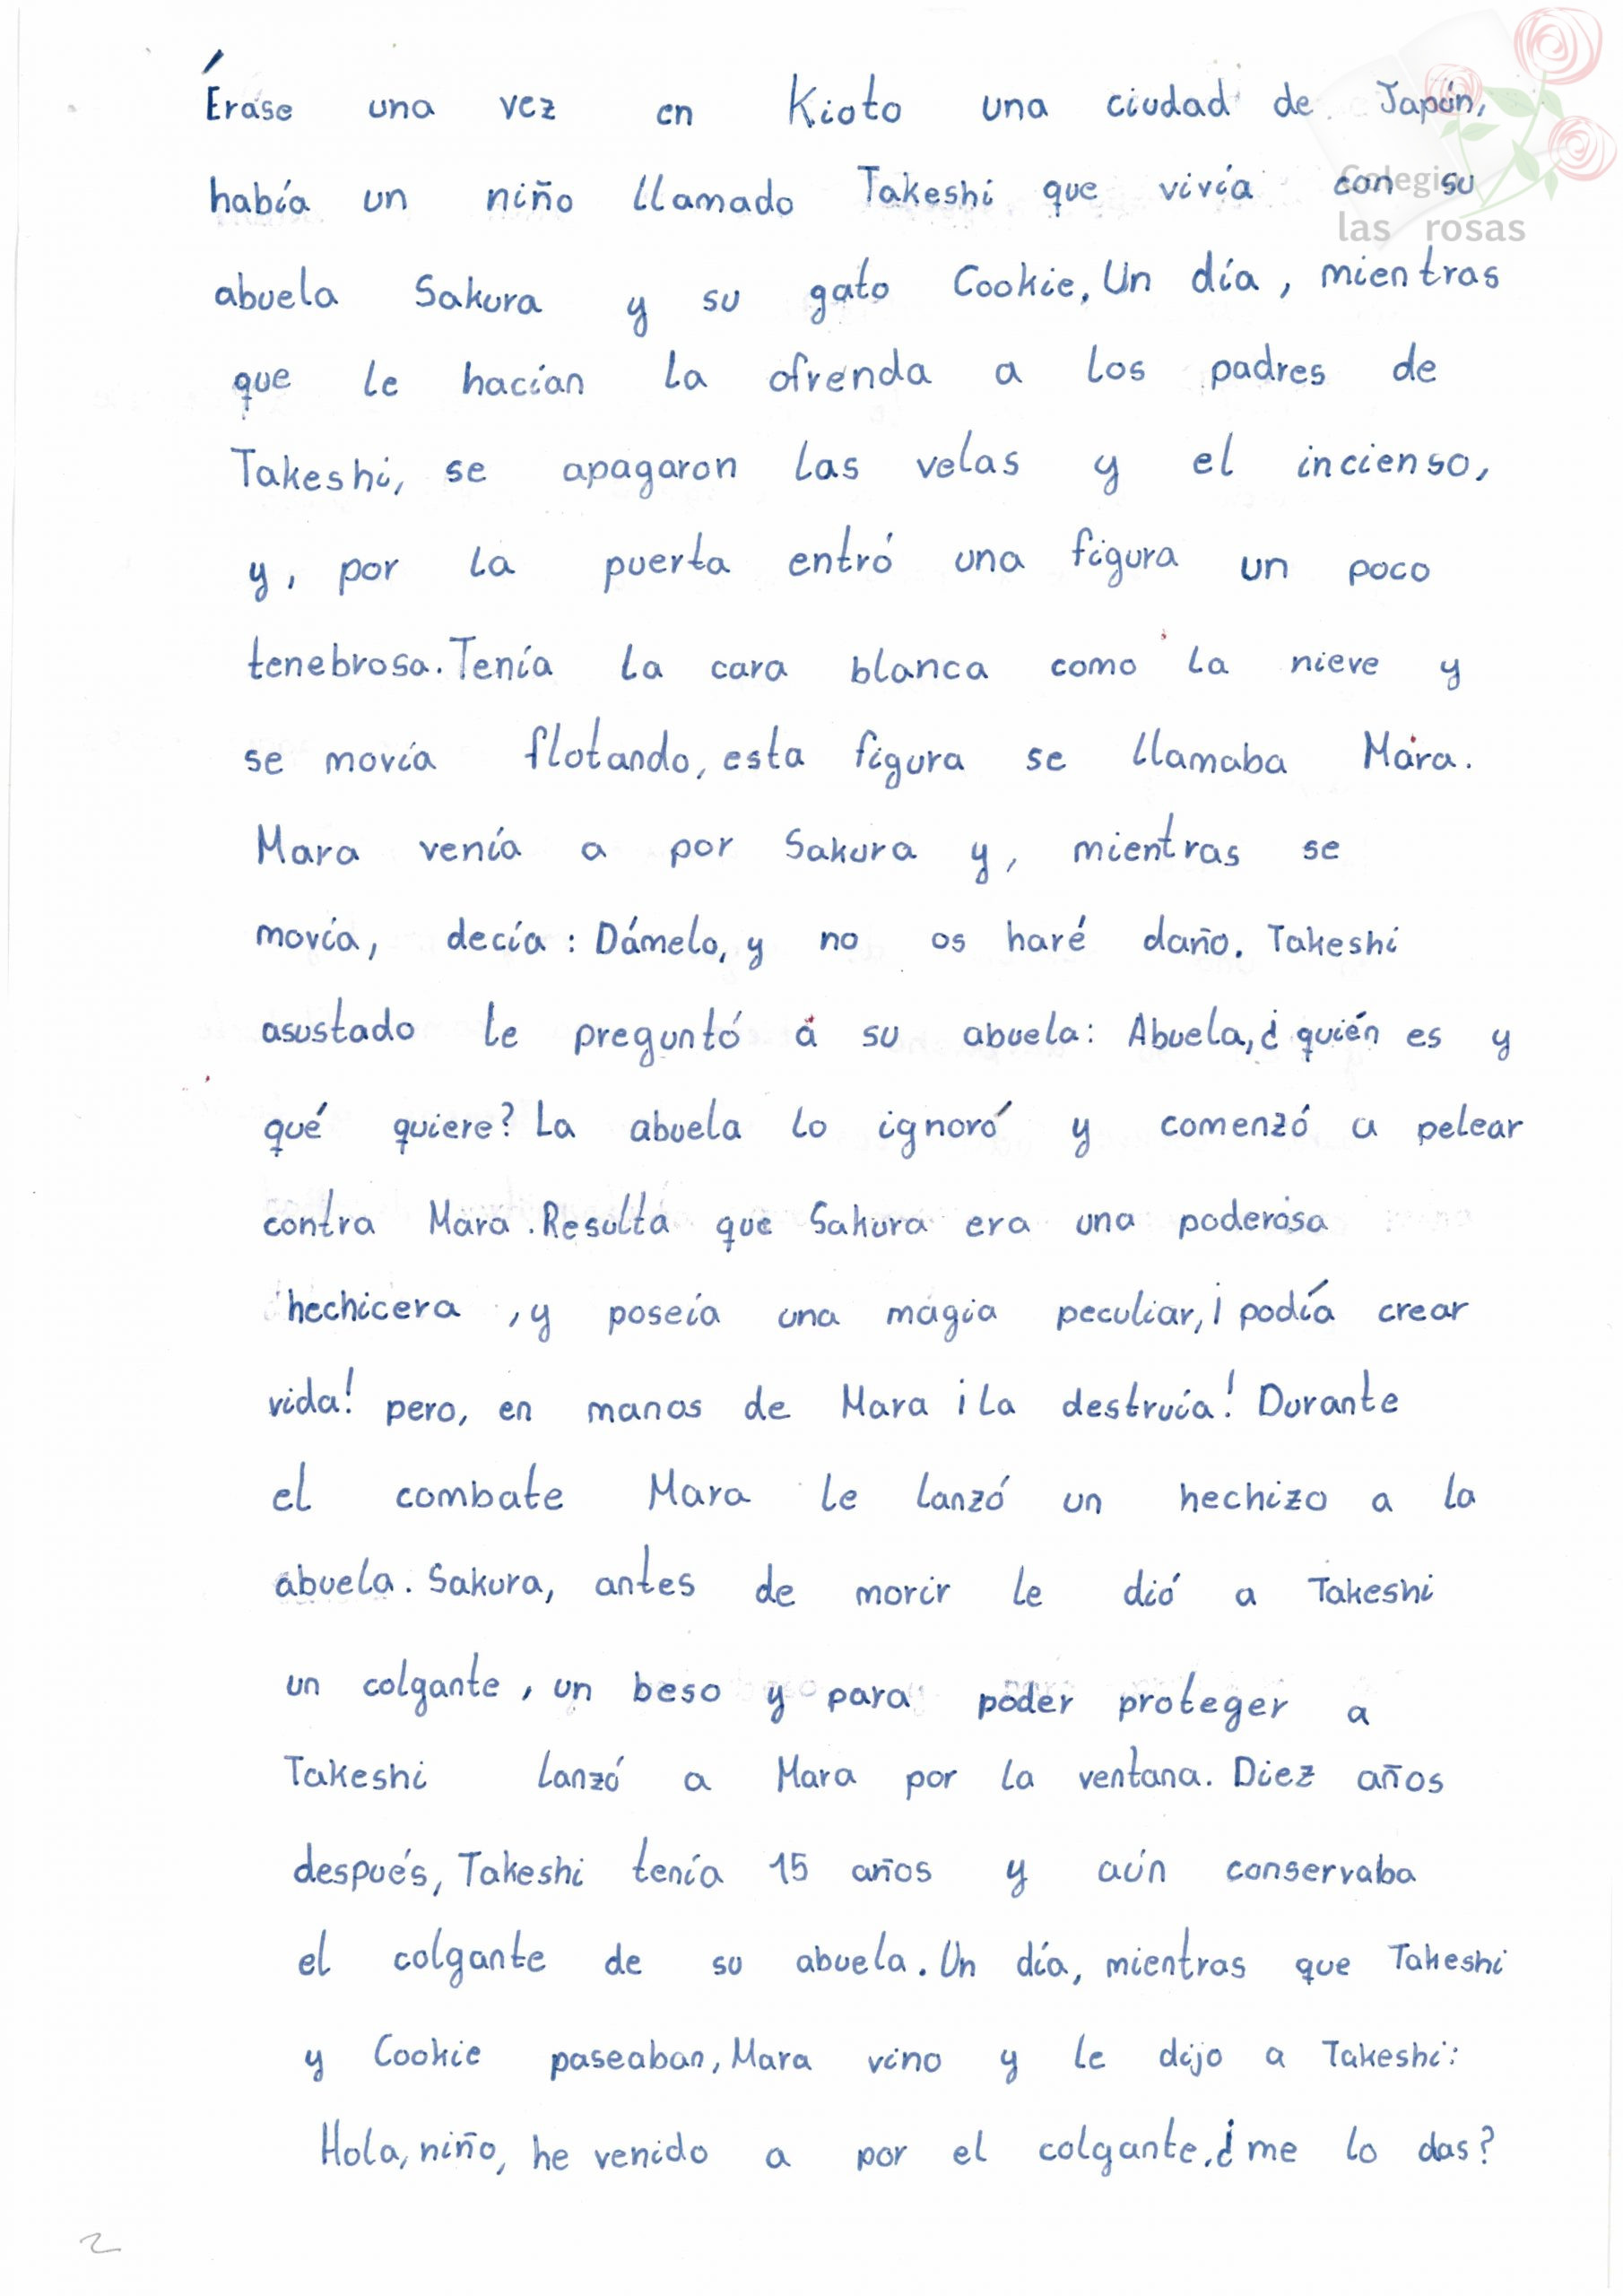 Érase una vez en Kioto una ciudad de Japón,
había un niño llamado Takeshi que vivía con su
Colegio
las rosas
abuela Sakura y su gato Cookie. Un día, mientras
que le hacían la ofrenda a los padres de
Takeshi, se apagaron las velas y el incienso,
y, por la puerta entró una figura un poco
tenebrosa. Tenía la cara blanca como la nieve y
se movía flotando, esta figura se llamaba Mara.
Mara venía a por Sakura y, mientras se
movía, decía: Dámelo, y no os haré daño. Takeshi
asustado le preguntó a su abuela: Abuela, ¿quién es y
qué quiere? La abuela lo ignoró y comenzó a pelear
contra Mara. Resulta que Sakura era una poderosa
hechicera, y poseía una magia peculiar, ¡podía crear
vida! pero, en manos de Mara ¡la destruía! Durante
el combate Mara le lanzó un hechizo a la
abuela. Sakura, antes de morir le dió a Takeshi
un colgante, un beso y para poder proteger a
Takeshi lanzó a Mara por la ventana. Diez años
después, Takeshi tenía 15 años y aún conservaba
el colgante de su abuela. Un día, mientras que Takeshi
y Cookie paseaban, Mara vino y le dijo a Takeshi:
Hola, niño, he venido a por el colgante, ¿me lo das?
2